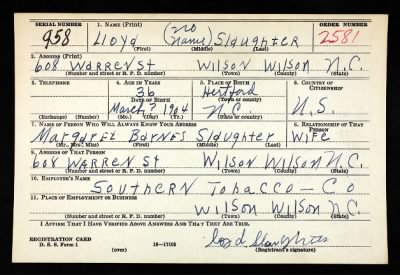 SERIAL NUMBER
1. NAME (Print)
ORDER NUMBER
958
Lloyd (no name) Slaughter
2581
(First) (Middle) (Last)
2. ADDRESS (Print)
608 Warren St Wilson Wilson N.C.
(Number and street or R. F. D. number) (Town) (County) (State)
3. TELEPHONE
4. AGE IN YEARS
5. PLACE OF BIRTH
6. COUNTRY OF CITIZENSHIP
36
Hertford
DATE OF BIRTH
(Town or county)
March, 7, 1904
N.C.
U.S.
(Exchange) (Number)
(Mo.) (Day) (Yr.)
(State or country)
7. NAME OF PERSON WHO WILL ALWAYS KNOW YOUR ADDRESS
8. RELATIONSHIP OF THAT PERSON
Margaret Barnes Slaughter
Wife
(Mr., Mrs., Miss) (First) (Middle) (Last)
9. ADDRESS OF THAT PERSON
608 Warren St Wilson Wilson N.C.
(Number and street or R. F. D. number) (Town) (County) (State)
10. EMPLOYER'S NAME
Southern Tobacco - Co
11. PLACE OF EMPLOYMENT OR BUSINESS
Wilson Wilson N.C.
(Number and street or R. F. D. number) (Town) (County) (State)
I AFFIRM THAT I HAVE VERIFIED ABOVE ANSWERS AND THAT THEY ARE TRUE.
REGISTRATION CARD
D. S. S. Form 1
(over)
16-17105
Loyd Slaughter
(Registrant's signature)